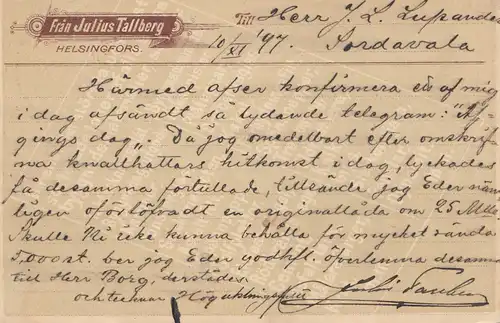 Från Julius Tallberg
HELSINGFORS.
Till Herr J. L. Lupander
10/XI '97. Sordavala
Härmed afser konfirmera ett af mig
i dag afsändt så lydande telegram: "Af-
gingo dag". Då jag omedelbart efter omskrif-
na knallhattars hitkomst i dag, lyckades
få desamma förtullade, tillsände jag Eder näm-
ligen oförtöfvadt en originallåda om 25 Mille
Skulle Ni icke kunna behålla för mycket sända
5,000 st. ber jag Eder godhfl. öfverlemna desamma
till Herr Borg, derstädes
och tecknar Högaktningsfullt